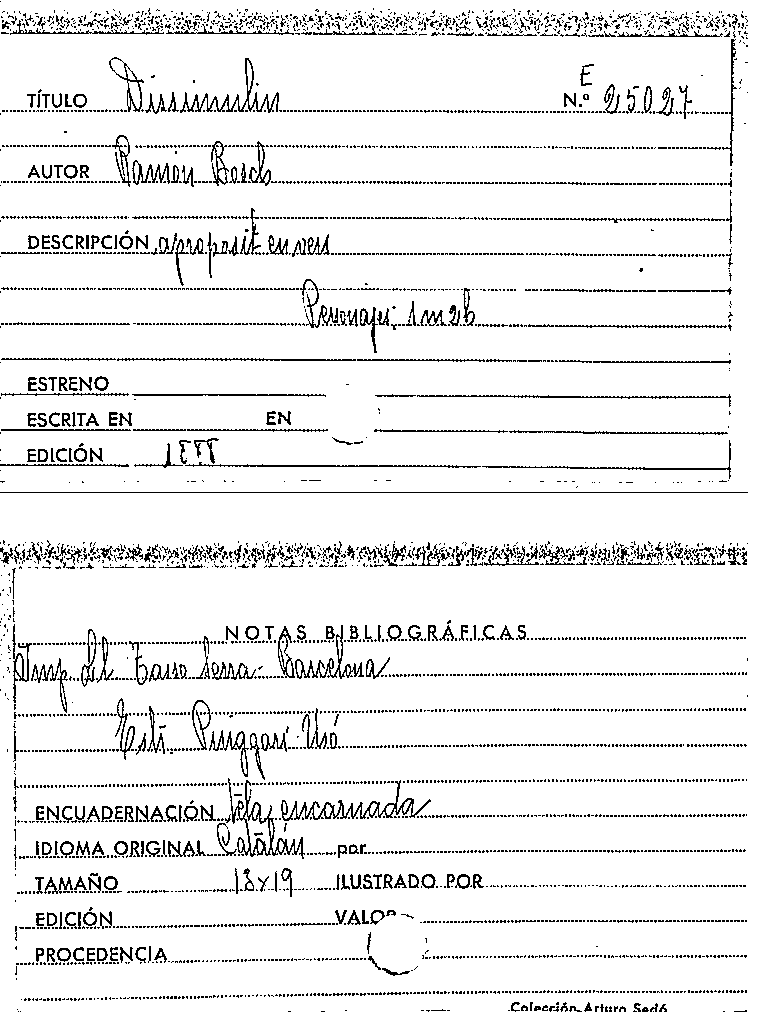 E
TÍTULO Dissimulin N.º 25027
AUTOR Ramón Bosch
DESCRIPCIÓN aproposit en vers
Personajes: 1m 2h
ESTRENO
ESCRITA EN EN
EDICIÓN
NOTAS BIBLIOGRÁFICAS
Imp. Lil Tasso Serra - Barcelona
Puiggarí
ENCUADERNACIÓN tela encarnada
IDIOMA ORIGINAL Catalán por
TAMAÑO 13x19 ILUSTRADO POR
EDICIÓN VALOR
PROCEDENCIA
Colección Arturo Sedó